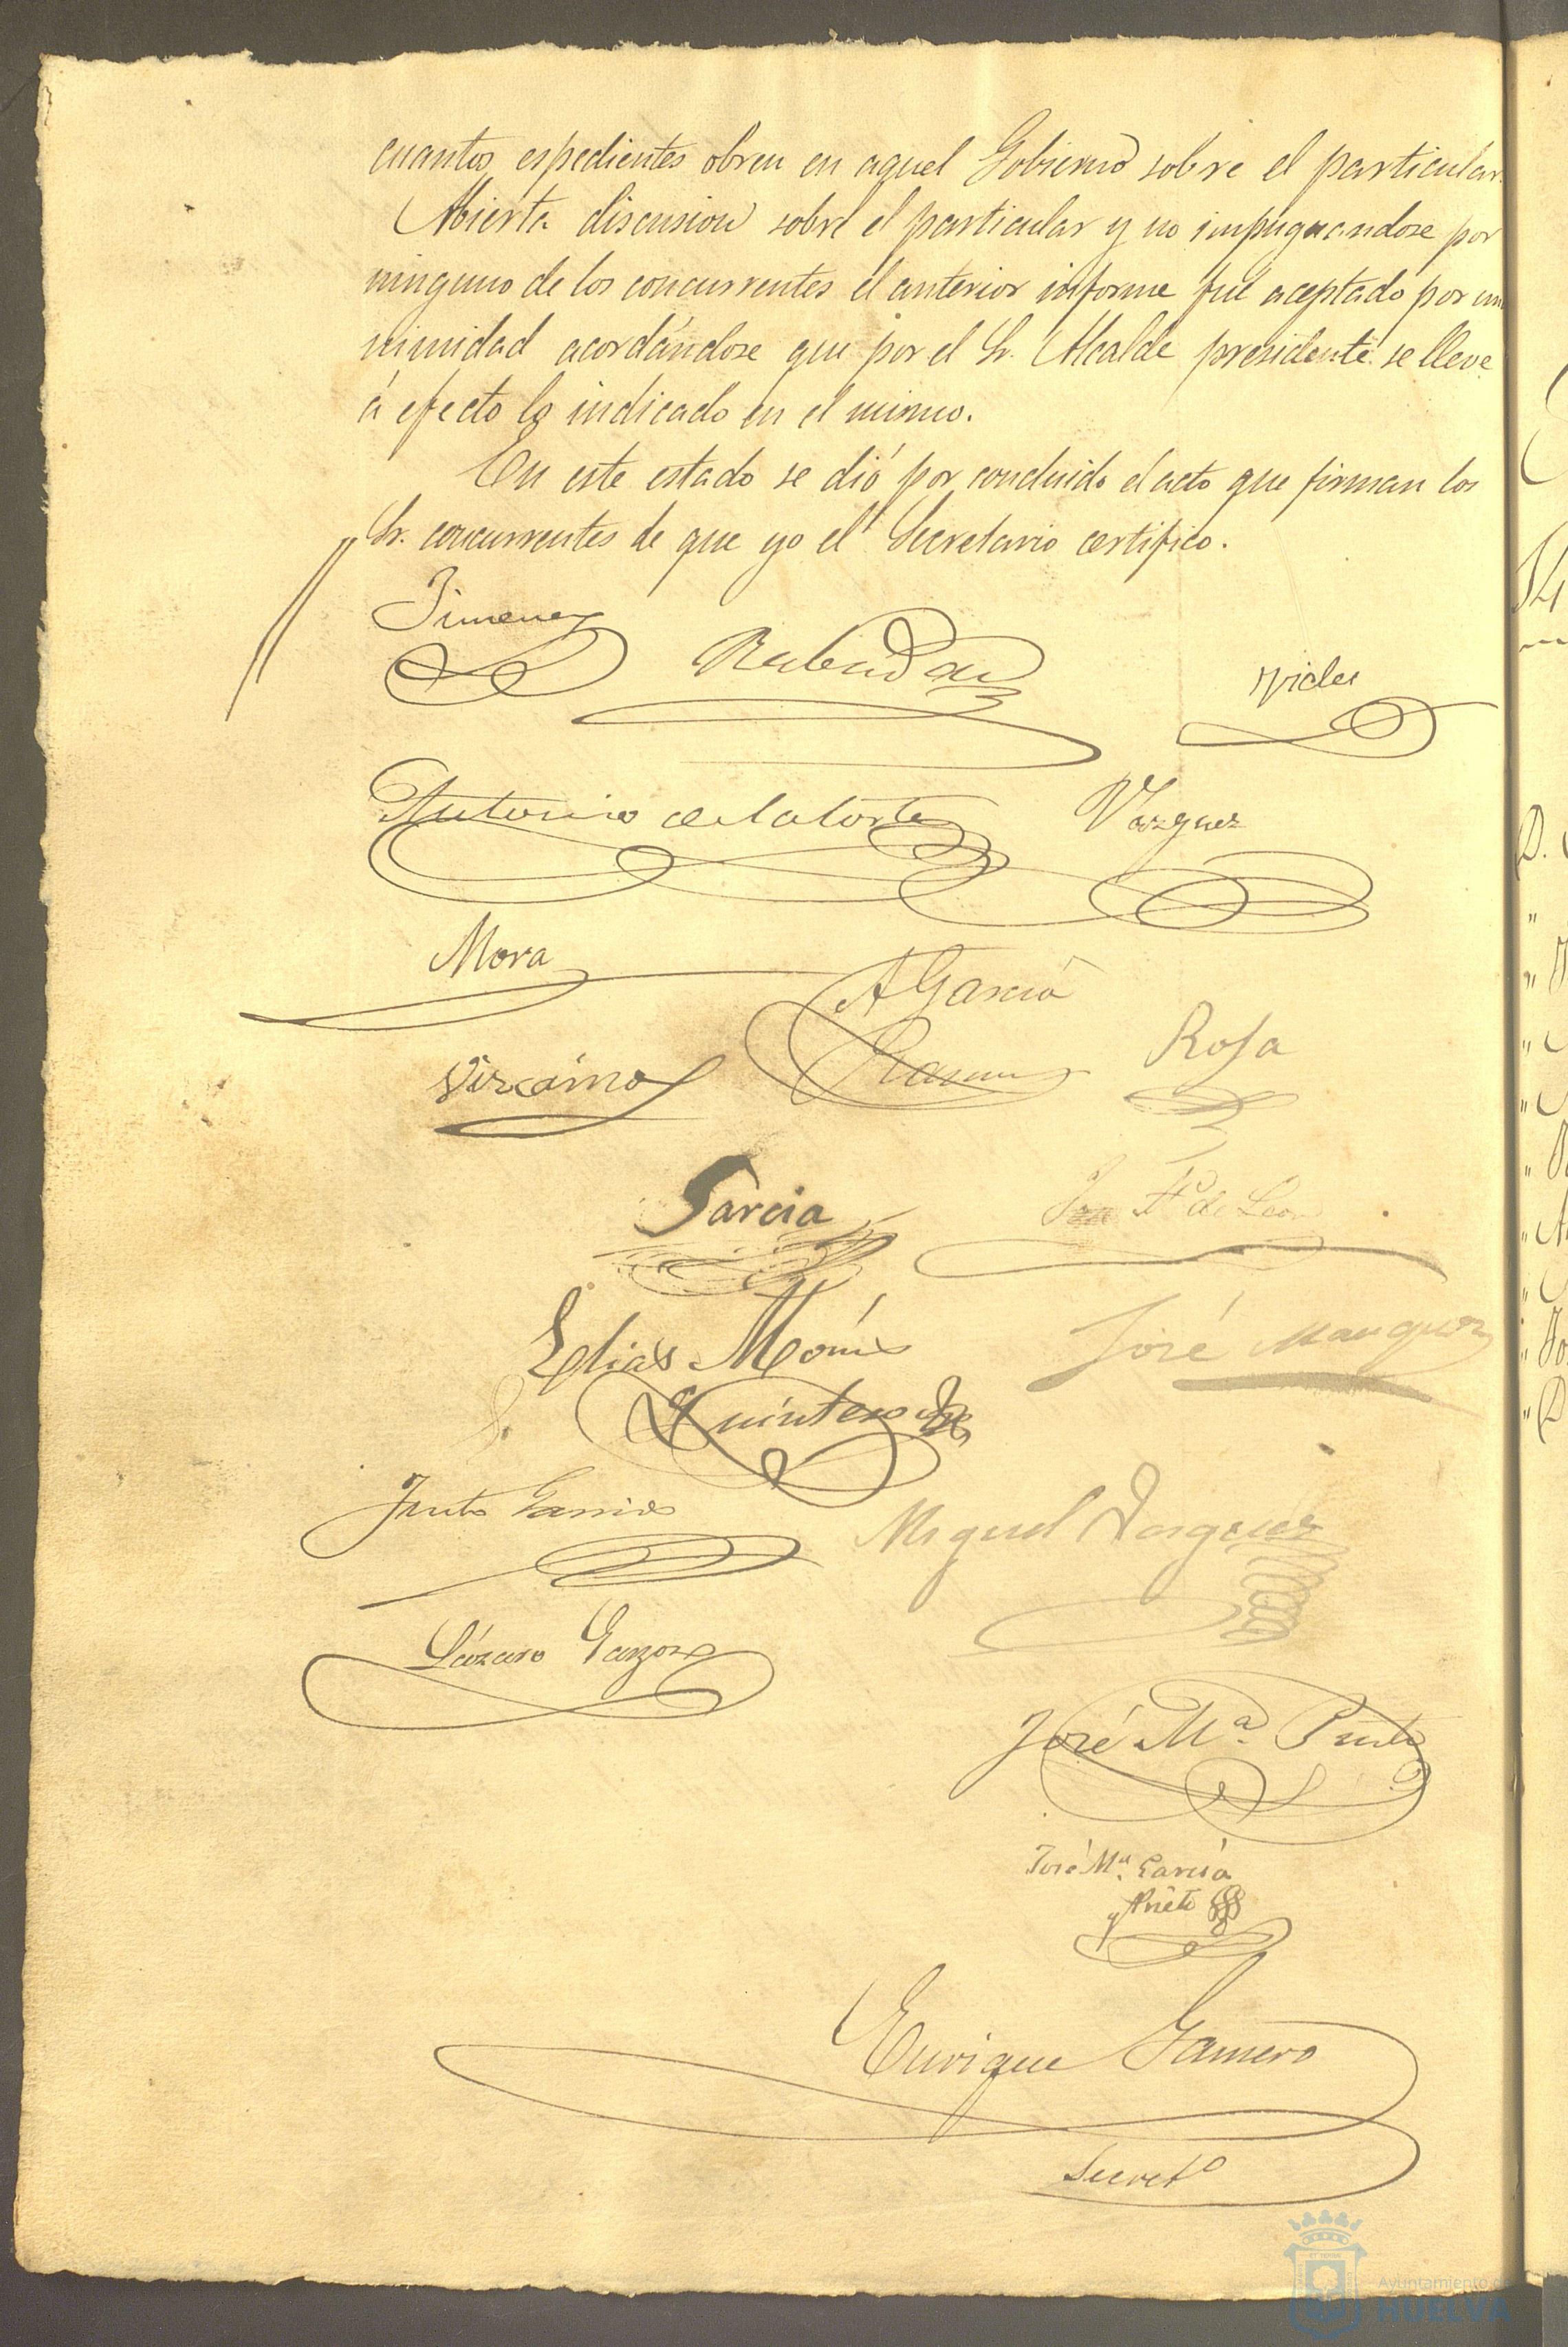 cuantos espedientes obren en aquel Gobierno sobre el particular.
Abierta discusion sobre el particular y no impugnandose por
ninguno de los concurrentes el anterior informe fué aceptado por una
nimidad acordándose que por el Sr. Alcalde presidente se lleve
á efecto lo indicado en el mismo.
En este estado se dió por concluido el acto que firman los
Sr. concurrentes de que yo el Secretario certifico.
Jimenez
Rabadan
Antonio de la Corte
Vazquez
Mora
A Garcia
Ramos
Rosa
Vizcaino
Garcia
de Leon
Elias Monis
José
Quintero
Justo Garrido
Miguel Vazquez
Lázaro Garzon
José Mª. Prieto
José Mª. García
y Prieto
Enrique Gamero
Secretº
Ayuntamiento de
HUELVA